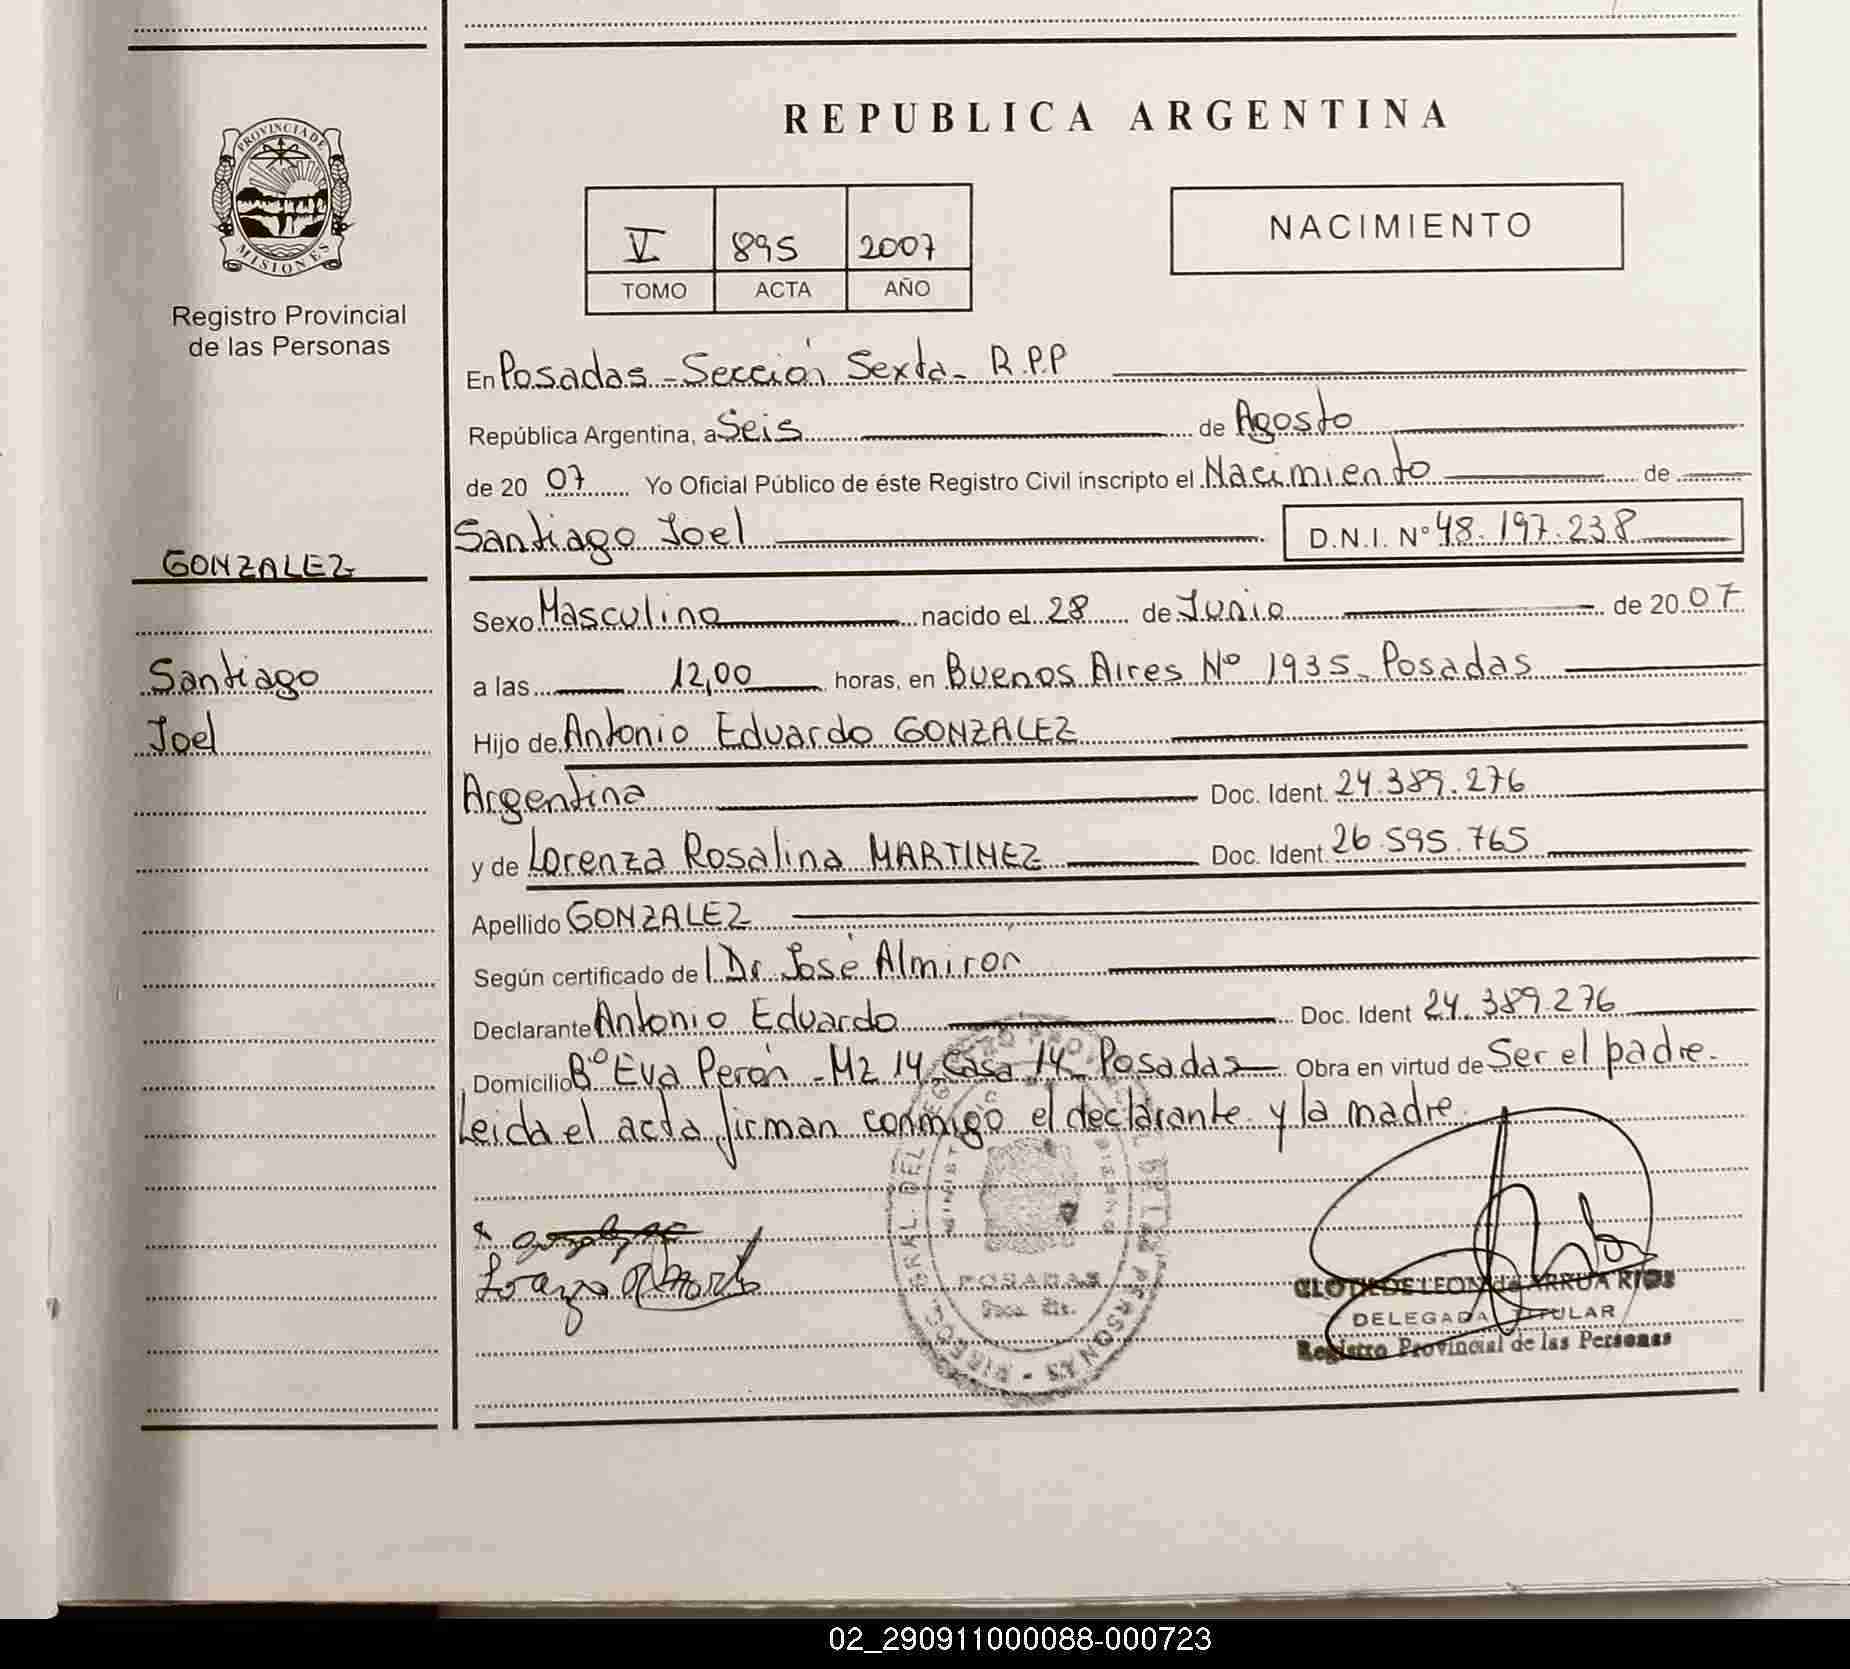 PROVINCIA DE
MISIONES
Registro Provincial
de las Personas
GONZALEZ
Santiago
Joel
REPUBLICA ARGENTINA
V 895 2007
TOMO ACTA AÑO
NACIMIENTO
En Posadas - Sección Sexta - R.P.P
República Argentina, a Seis de Agosto
de 20 07 Yo Oficial Público de éste Registro Civil inscripto el Nacimiento de
Santiago Joel D.N.I. Nº 48.197.238
Sexo Masculino nacido el 28 de Junio de 20 07
a las 12,00 horas, en Buenos Aires Nº 1935. Posadas
Hijo de Antonio Eduardo GONZALEZ
Argentina Doc. Ident. 24.389.276
y de Lorenza Rosalina MARTINEZ Doc. Ident. 26.595.765
Apellido GONZALEZ
Según certificado de l Dr José Almiron
Declarante Antonio Eduardo Doc. Ident 24.389.276
Domicilio Bº Eva Perón - Mz 14 Casa 14 - Posadas Obra en virtud de Ser el padre.
Leida el acta, firman conmigo el declarante y la madre.
POSADAS
CLOTILDE LEON de ARRUA RIOS
DELEGADA TITULAR
Registro Provincial de las Personas
02_290911000088-000723